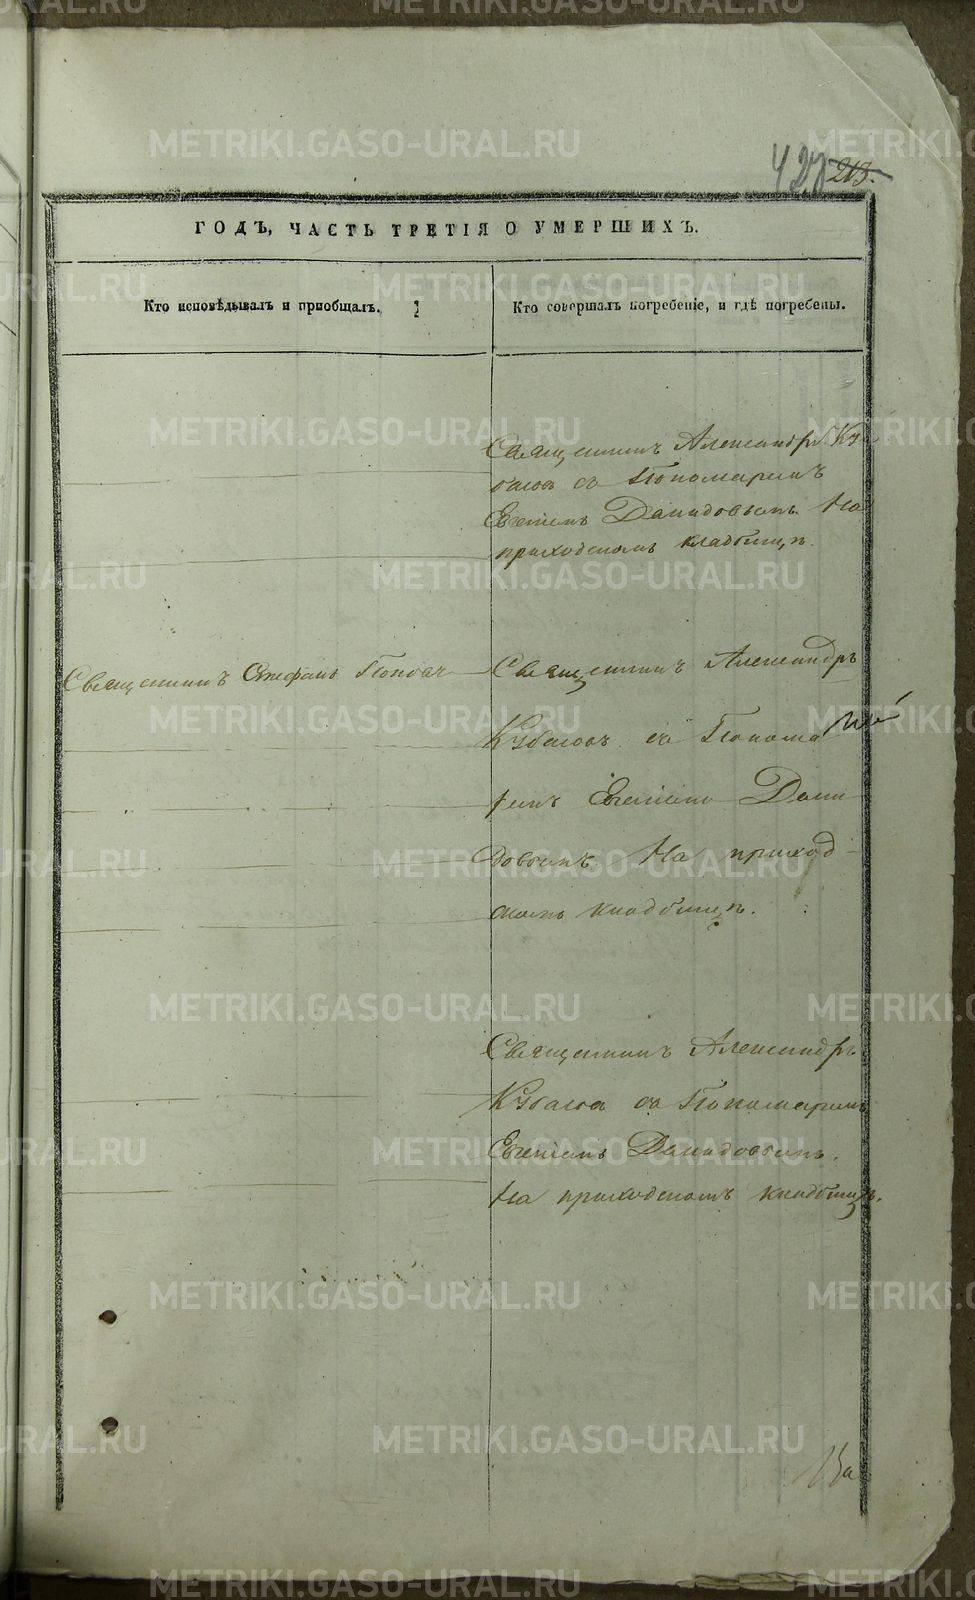 420 213.
ГОДЪ, ЧАСТЬ ТРЕТІЯ О УМЕРШИХЪ.
Кто исповѣдывалъ и пріобщалъ.
Кто совершалъ погребеніе, и гдѣ погребены.
Священникъ Александръ Ку
басов съ Пономаремъ
Евгеніемъ Давидовымъ На
приходскомъ кладбищѣ.
Священникъ Стефанъ Попов
Священникъ Александръ
Кубасовъ съ Понома
ремъ Евгеніемъ Дави
довымъ На приход
скомъ кладбищѣ.
Священникъ Александръ
Кубасов съ Пономаремъ
Евгеніемъ Давидовымъ.
На приходскомъ кладбищѣ.
METRIKI.GASO-URAL.RU